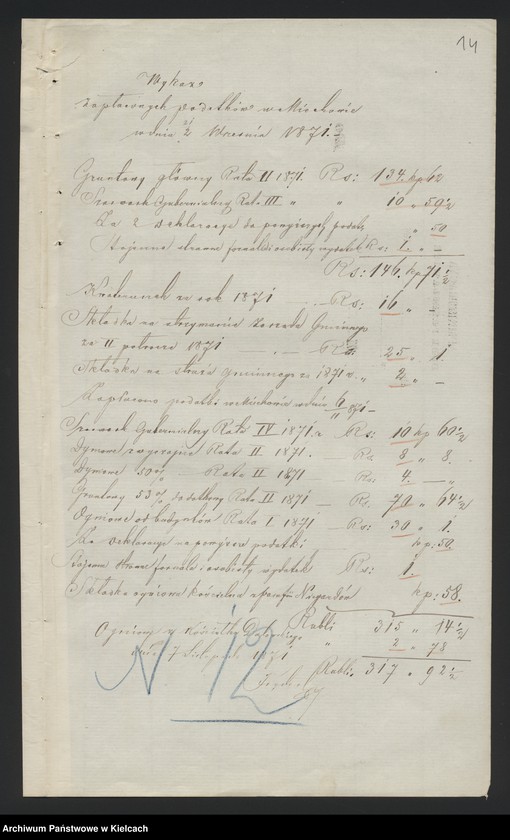 14
Wykaz
zapłaconych podatków w Miechowie
w dniu 2/ Września 1871.
Gruntowy główny Rata II 1871. Rs: 134. kp 62
Szarwark Gubernialny Rata III " " 10 " 59½
Za 2 deklaracye do powyższych podat. " 50
Stajenne strawa formalki osobisty wydatek Rs: 1. " –
Rs: 146. kp 71½
za rok 1871 Rs: 16 "
Składka na utrzymanie Zarządu Gminnego
za II półrocze 1871 Rs: 25 " 1
Składka na gminnego za 1871 r. " 2 " –
Zapłacono podatki w Miechowie w dniu 6/11 871 –
Szarwark Gubernialny Rata IV 1871 r. Rs: 10 kp 60½
Dymowe zwyczajne Rata II 1871. Rs. 8 " 8.
Dymowe 50% Rata II 1871 Rs. 4. — "
Gruntowy 53% dodatkowy Rata II 1871 – Rs. 70 " 64½
Ogniowe od budynków Rata I 1871 – Rs: 30 " 1.
Za deklaracye na powyższe podatki kp: 50
Stajenne strawa formala i osobisty wydatek Rs: 1.
Składka kościelna w parafii kp: 58.
Rubli 315 " 14½
" 2 " 78
dnia 7 Listopada 1871
Rubli 317 " 92½
N 12
Archiwum Państwowe w Kielcach